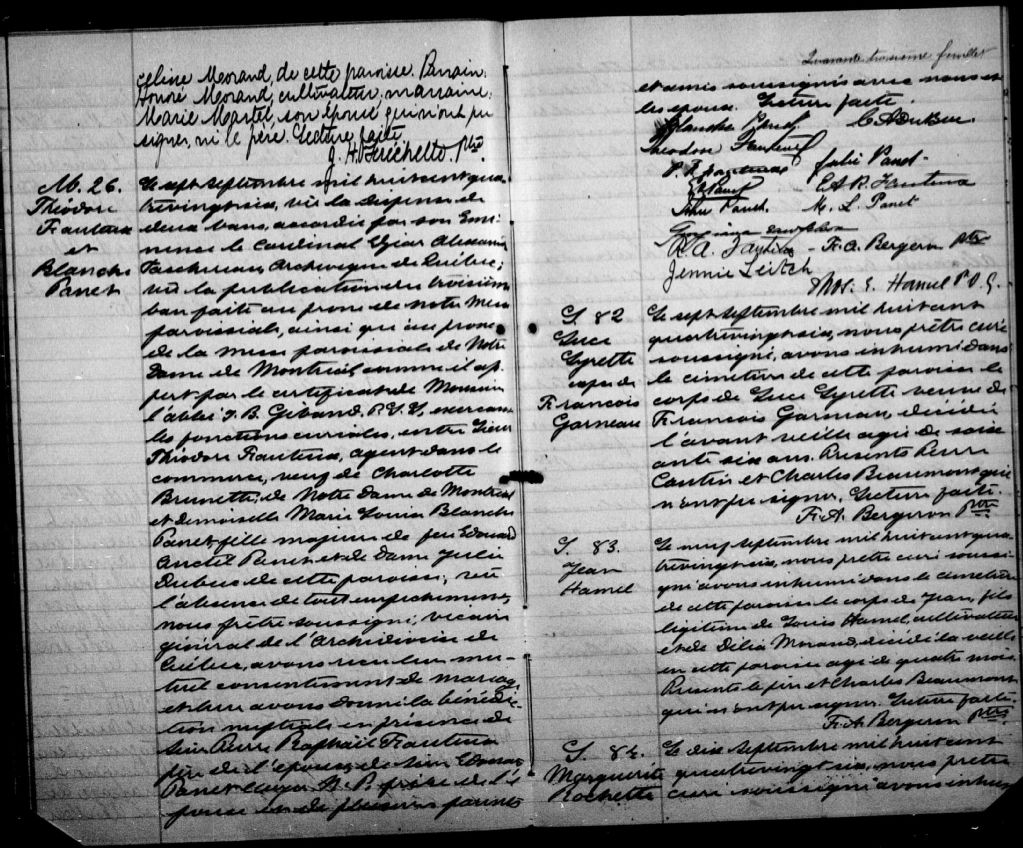 Celine Morand, de cette paroisse. Parrain,
Honoré Morand, cultivateur, marraine,
Marie Martel, son épouse qui n'ont pu
signer, ni le père. Lecture faite.
J. H. Fréchette Ptre.
M. 26.
Théodore
Fauteux
et
Blanche
Panet
Le sept Septembre mil huit cent qua-
trevingt six, vu la dispense de
deux bans, accordée par son Emi-
nence le Cardinal Elzéar Alexandre
Taschereau, Archevêque de Québec;
vu la publication du troisième
ban faite au prone de notre messe
paroissiale, ainsi qu'au prone
de la messe paroissiale de Notre
Dame de Montréal, comme il ap-
pert par le certificat de Monsieur
l'abbé J. B. Giband, P.S.S. exerçant
les fonctions curiales, entre Sieur
Théodore Fauteux, agent dans le
commerce, veuf de Charlotte
Brunette, de Notre Dame de Montréal
et demoiselle Marie Louise Blanche
Panet fille majeure de feu Edouard
Antill Panet et de dame Julie
Dubuc de cette paroisse; vu
l'absence de tout empêchement,
nous prêtre soussigné, vicaire
général de l'Archidiocèse de
Québec, avons reçu leur mu-
tuel consentement de mariage
et leur avons donné la bénédic-
tion nuptiale en présence de
Sieur Pierre Raphaël Fauteux
père de l'époux, de Sieur
Panet N. P. frère de l'é-
pouse et de plusieurs parents
Quarante troisième feuillet
et amis soussignés avec nous et
les époux. Lecture faite.
Blanche Panet C. A. Dubuc
Théodore Fauteux
Julie Panet
E. A. R. Fauteux
Panet M. L. Panet
R. A. Fauteux F. A. Bergeron Ptre
Jennie Leitch
Thos. E. Hamel P.V.G.
S. 82
Luce
Gyrette
François
Garneau
Le sept Septembre mil huit cent
quatrevingt six, nous prêtre curé
soussigné, avons inhumé dans
le cimetière de cette paroisse le
corps de Luce Gyrette veuve de
François Garneau, décédée
l'avant veille agée de soix-
ante six ans. Présents Pierre
Cantin et Charles Beaumont qui
n'ont pu signer. Lecture faite.
F. A. Bergeron Ptre
S. 83.
Jean
Hamel
Le neuf Septembre mil huit cent qua-
trevingt six, nous prêtre curé soussi-
gné avons inhumé dans le cimetière
de cette paroisse le corps de Jean, fils
légitime de Louis Hamel, cultivateur
et de Délia Morand, décédé la veille
en cette paroisse agé de quatre mois.
Présents le père et Charles Beaumont
qui n'ont pu signer. Lecture faite.
F. A. Bergeron Ptre
S. 84.
Marguerite
Rochette
Le dix Septembre mil huit cent
quatrevingt six, nous prêtre
curé soussigné avons inhumé